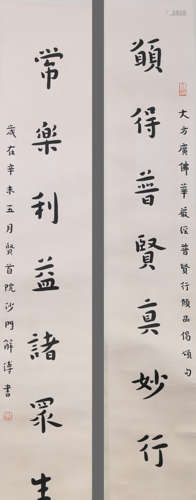 大方廣佛華嚴經普賢行願品偈頌句
願得普賢真妙行
常樂利益諸眾生
歲在辛未五月賢首院沙門解溥書